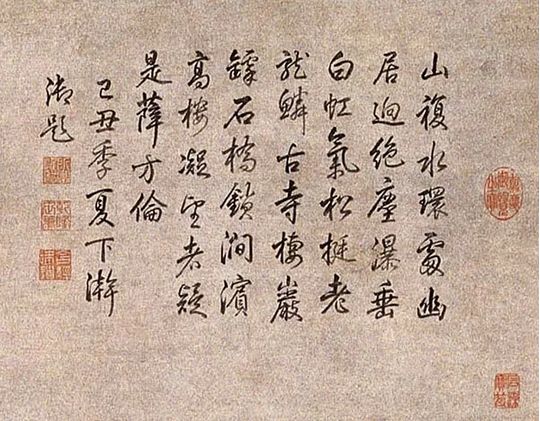 山複水環處幽
居迥絕塵瀑垂
白虹氣松挺老
龍鱗古寺棲巖
罅石橋鎖澗濱
高樓凝望者疑
是薛方倫
己丑季夏下澣
御題